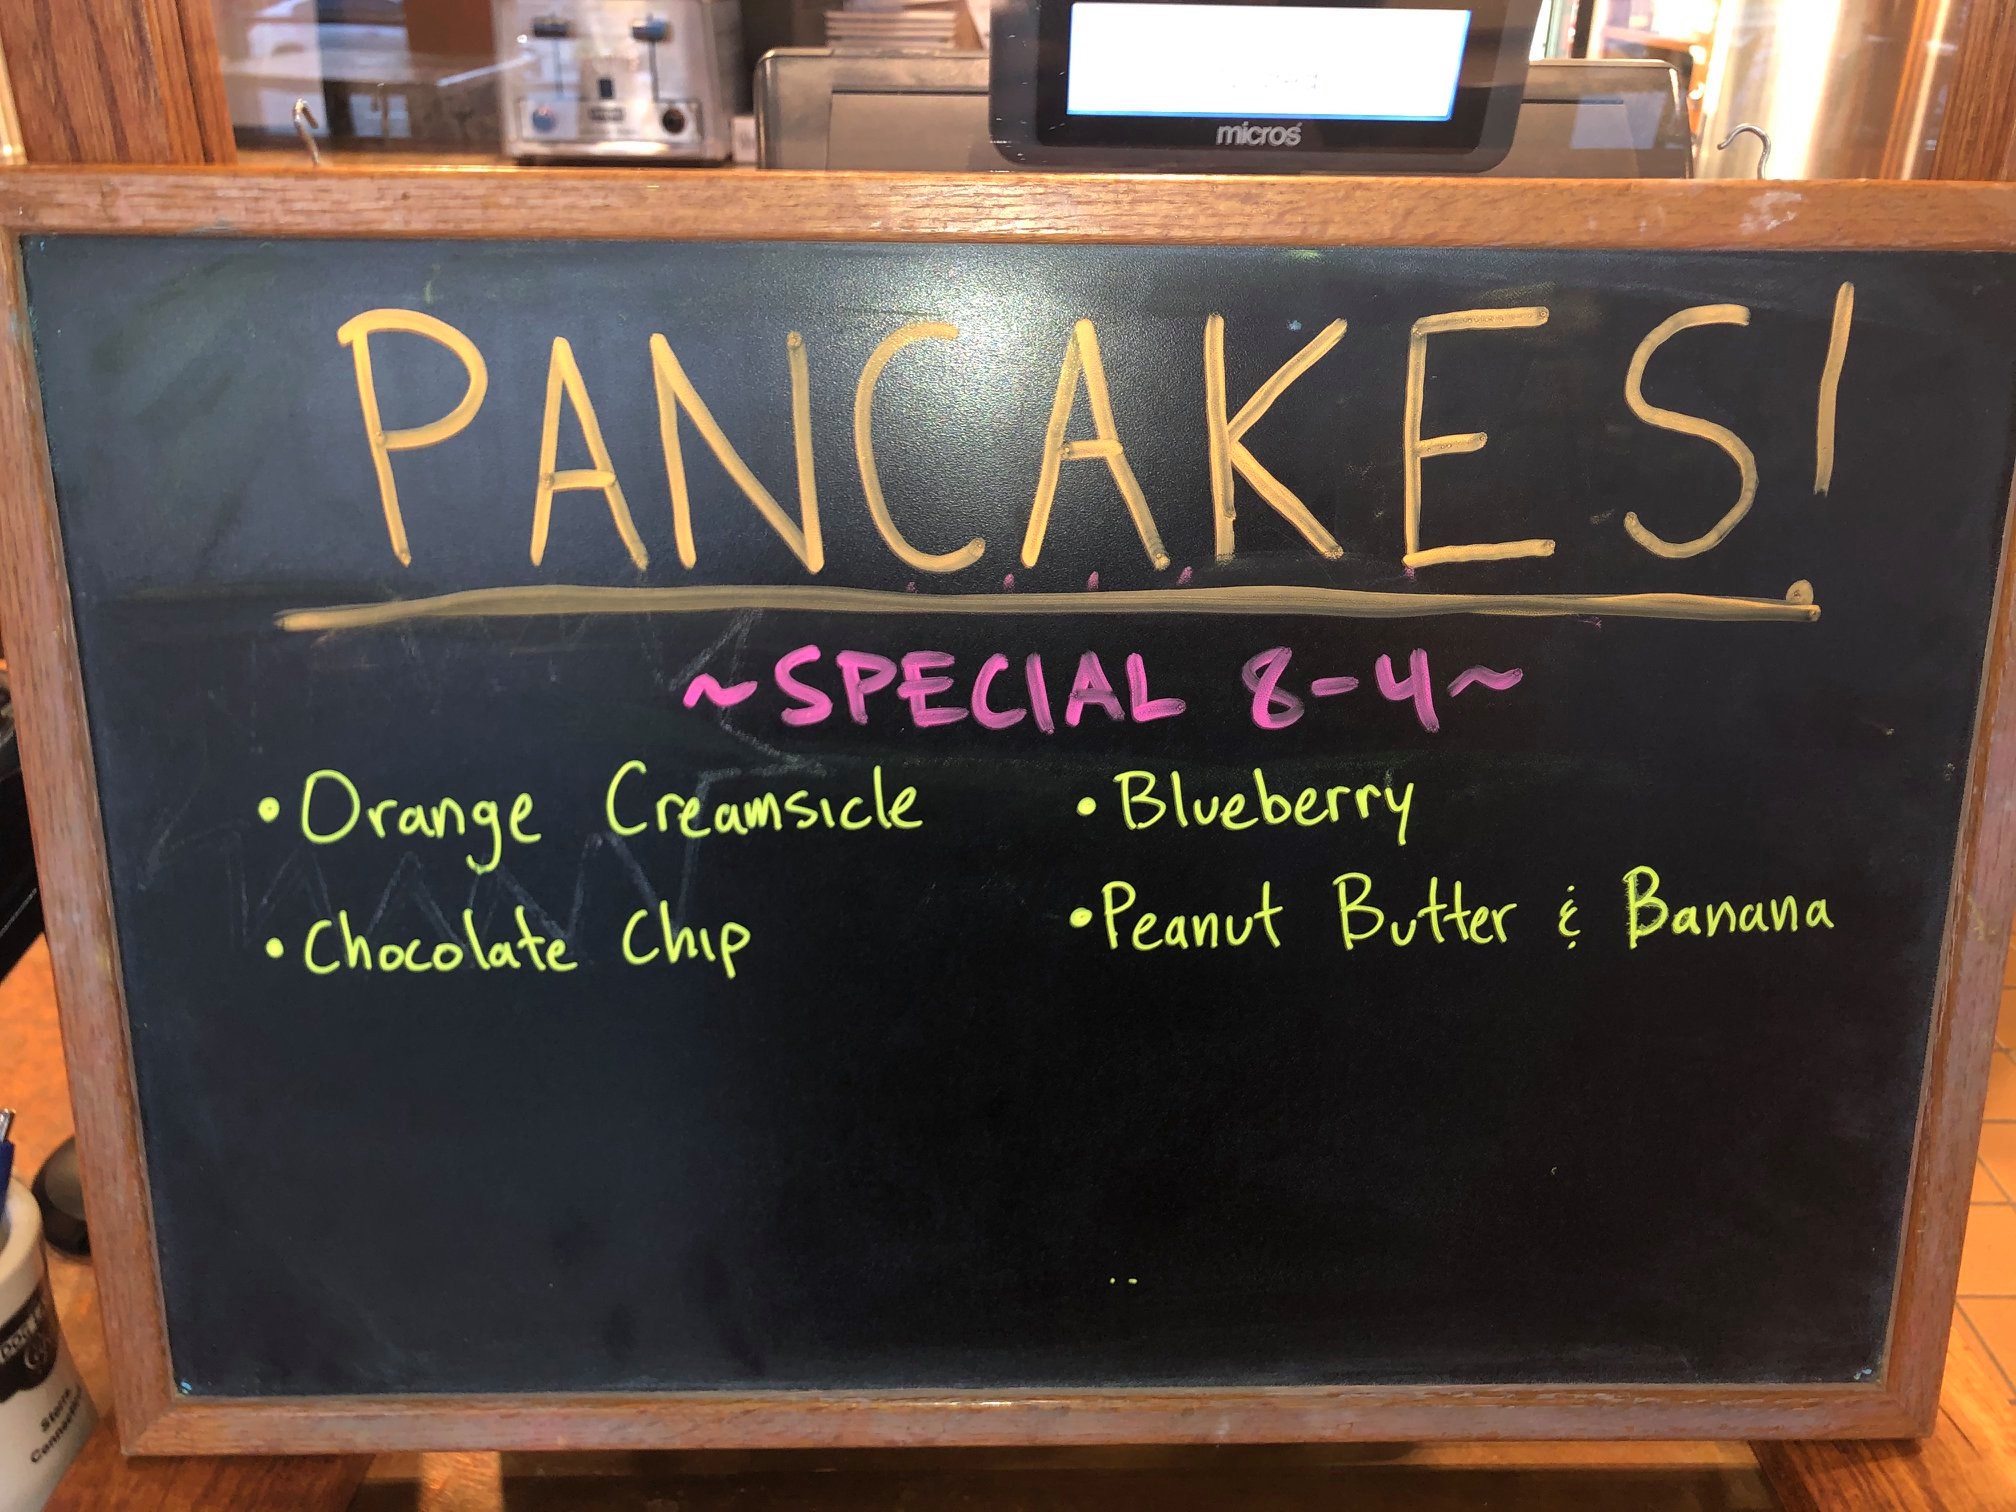 micros
PANCAKES!
~SPECIAL 8-4~
• Orange Creamsicle
• Blueberry
• Chocolate Chip
• Peanut Butter & Banana